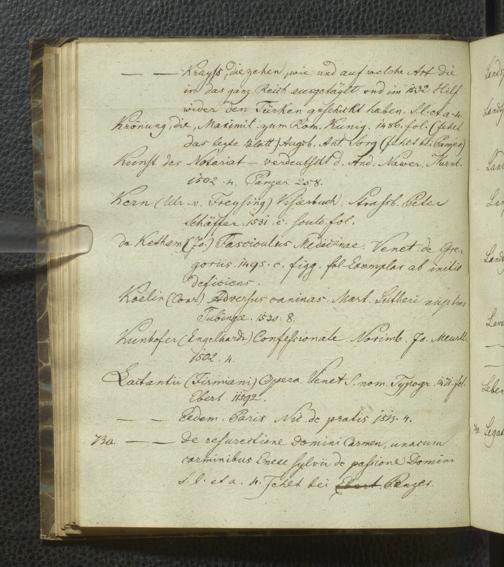 — — Krayß, die zehen, wie und auf welche Art die
in das ganz Reich ausgetaylt und im 1532 Hilf
wider den Türken geschikt haben. S. l. et a. 4.
Krönung, die, Maximil. zum Röm. Kunig. 1486. fol. (fehlt
das lezte Blatt) Augsb. Ant. Sorg (fehlt bei Panzer)
Kunst des Notariat — verdeutscht d. And.
1502. 4. Panzer 258.
Kern (Ulr. v. Freysing) Visierbuch. Strasb. Peter
Schäffer. 1531. c. fol.
de Ketham (Jo.) Fasciculus Medicinae. Venet. de Gre-
gorius. 1495. c. figg. fol. Exemplar ab initio
deficiens.
Koelin (Conr.) Adversus caninas Mart. Lutheri nuptias
Tubingae. 1530. 8.
Kunhofer (Engelhardi) Confessionale Norimb. Jo.
1502. 4.
Lactantii (Firmiani) Opera Venet. S. nom. Typogr. fol.
Ebert 11592.
— — Eadem. Paris. Nic. de pratis 1513. 4.
— — De resurectione Domini Carmen, unacum
carminibus Eneae Sylvii de passione Domini
S. l. et a. 4. Fehlt bei Ebert Panzer.